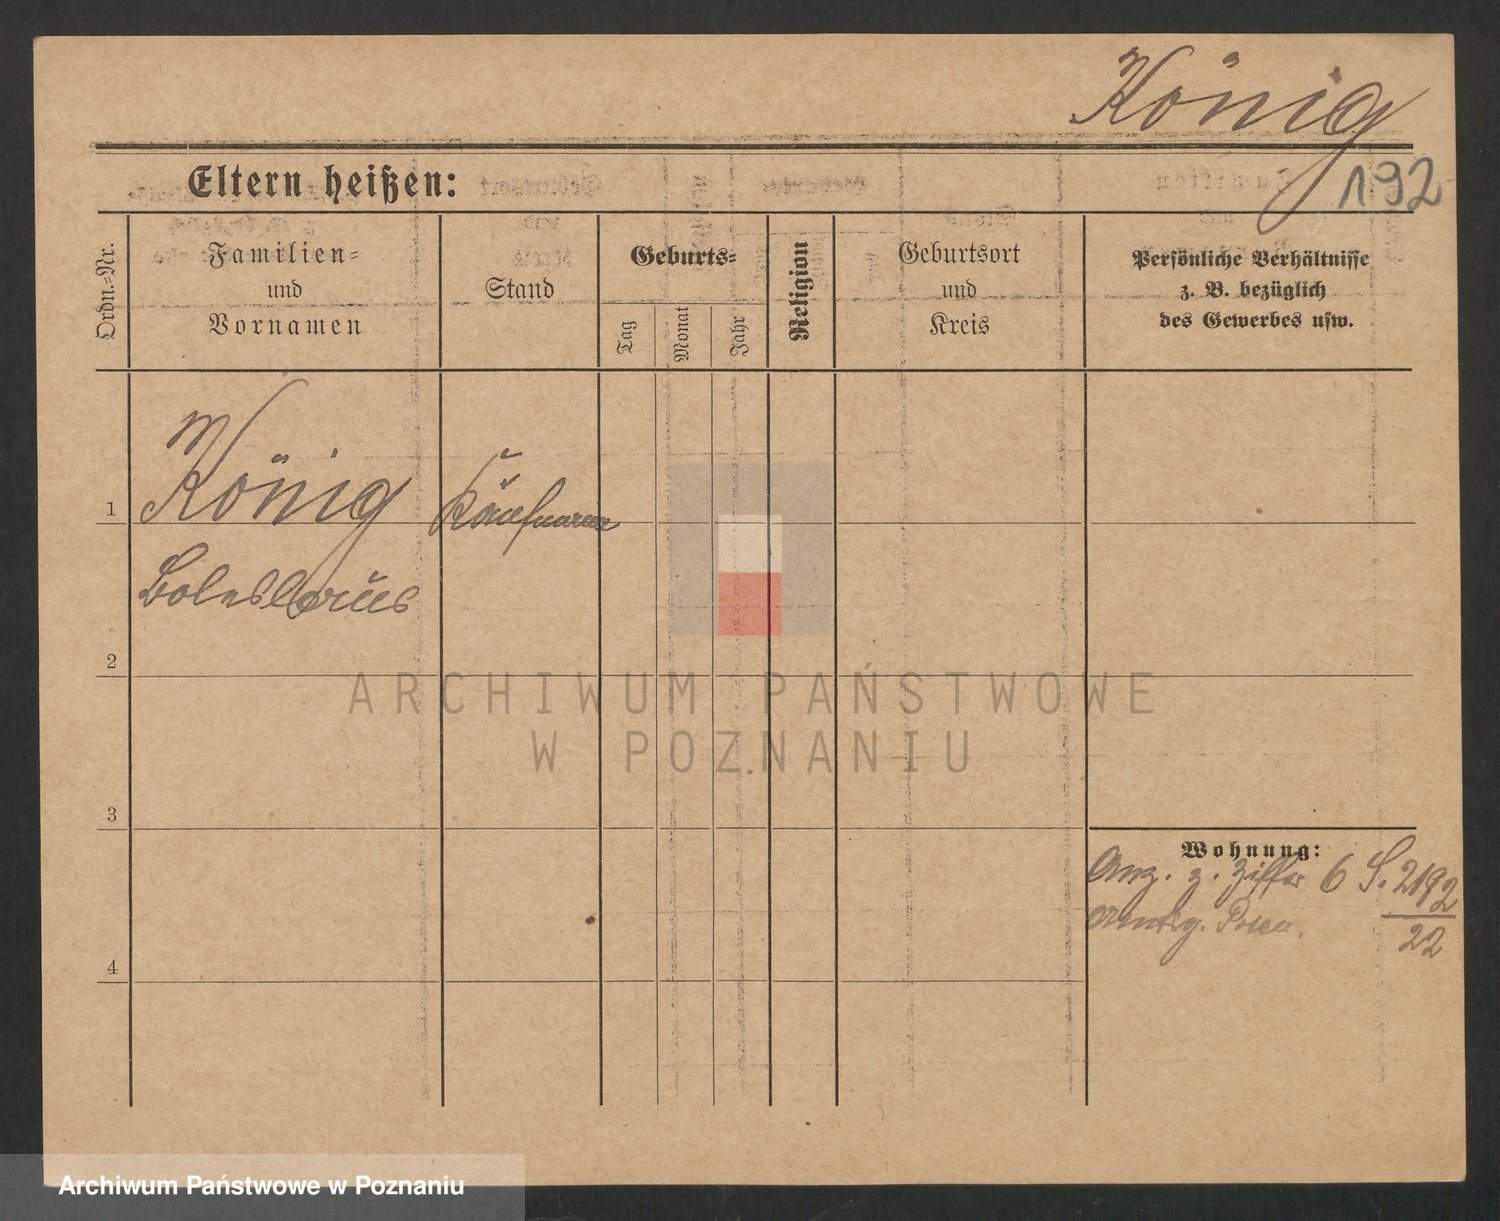 König
192
Eltern heißen:
Ordn.-Nr.
Familien-
und
Vornamen
Stand
Geburts-
Tag
Monat
Jahr
Religion
Geburtsort
und
Kreis
Persönliche Verhältnisse
z. B. bezüglich
des Gewerbes usw.
1
König
Kaufmann
Boleslaus
2
ARCHIWUM PAŃSTWOWE
W POZNANIU
3
Wohnung:
Anz. z. Ziffer 6 S. 2192
Posen.
22
4
Archiwum Państwowe w Poznaniu